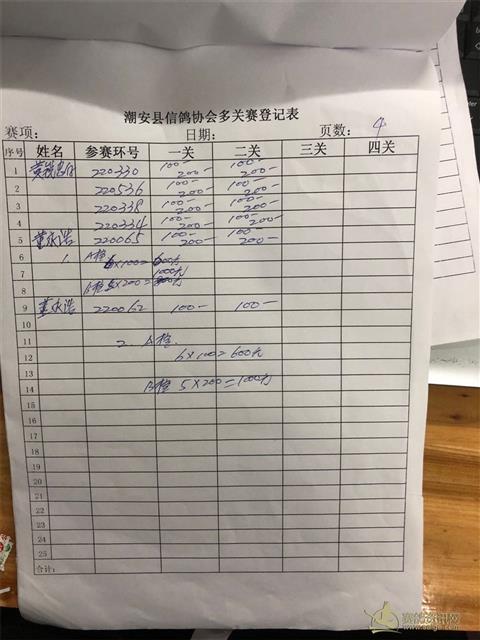 潮安县信鸽协会多关赛登记表
赛项: 日期: 页数: 4
序号 姓名 参赛环号 一关 二关 三关 四关
1 220330 100- 200- 100- 200-
2 220536 100- 200- 100- 200-
3 220338 100- 200- 100- 200-
4 220334 100- 200- 100- 200-
5 董永浩 220065 100- 200- 100- 200-
6 1. A档 6×100=600元
7 1000元
8 B档 5×200=
9 董永浩 220062 100- 100-
10
11 2. A档.
12 6×100=600元
13
14 B档 5×200=100元
15
16
17
18
19
20
21
22
23
24
25
合计:
赛鸽资讯网